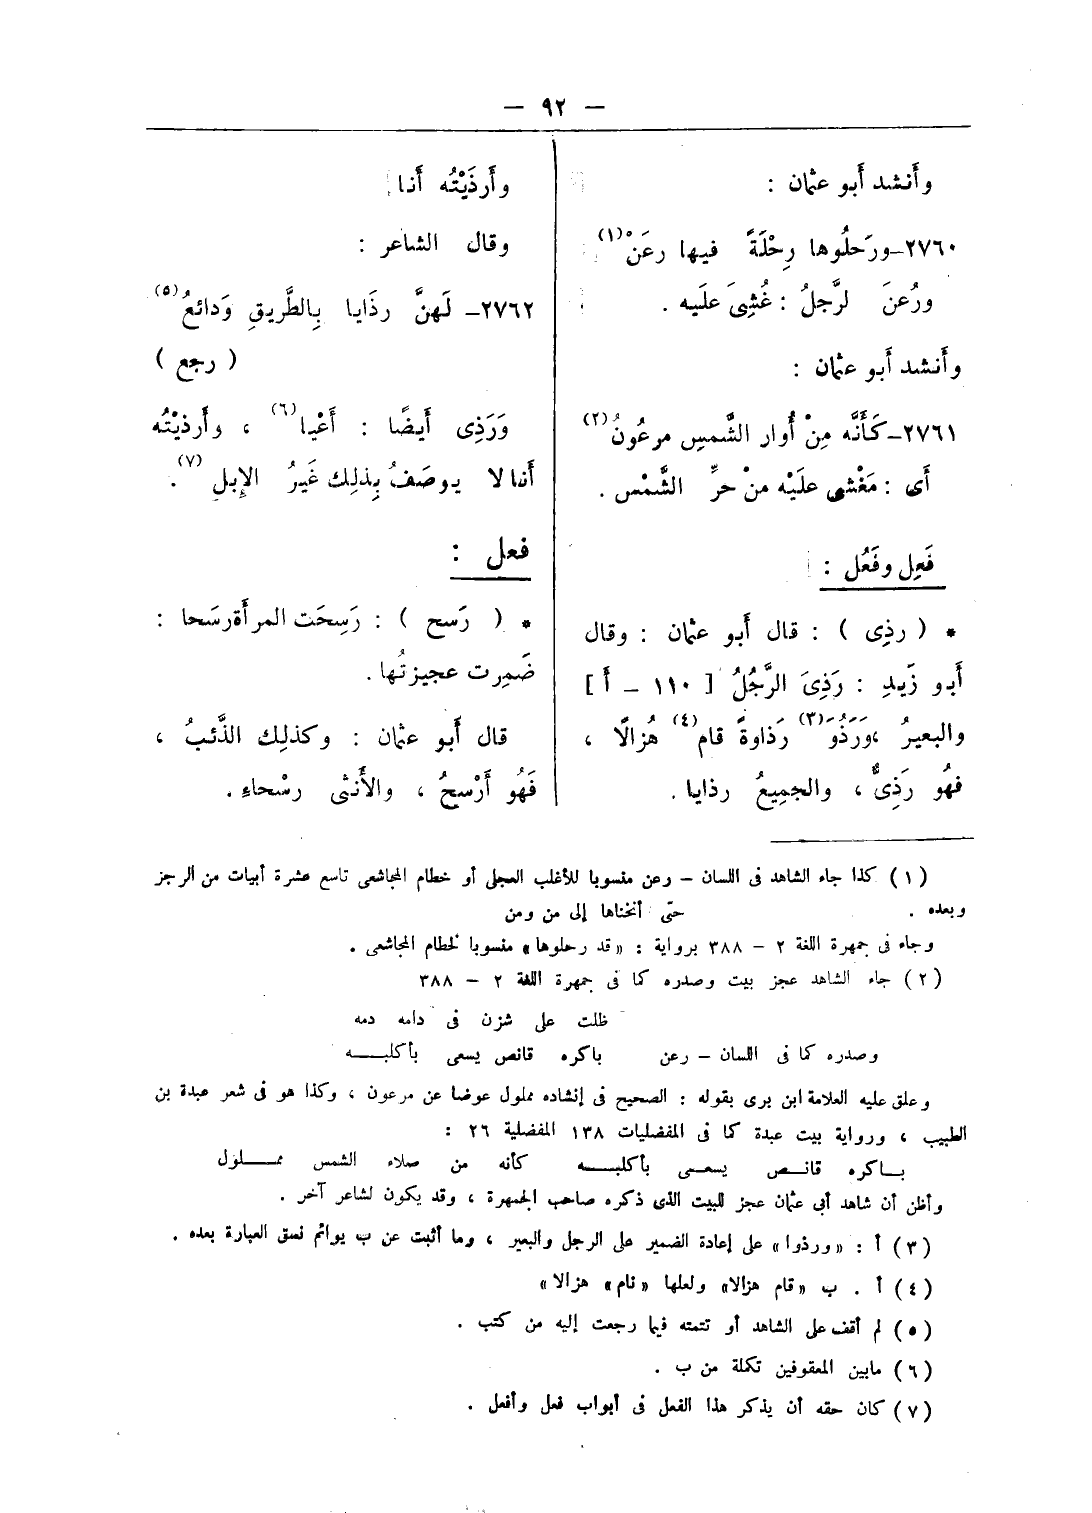 — ٩٢ —
وأَنشد أَبو عثمان :
٢٧٦٠–ورَحلُوها رِحْلَةً فيها رعَنْ(١)
ورُعنَ لرَّجلُ : غُشِىَ علَيه .
وأَنشد أَبو عثمان :
٢٧٦١–كَأَنَّه مِنْ أُوار الشَّمسِ مرعُونُ(٢)
أَى : مَغْشى علَيْه منْ حرِّ الشَّمْس .
فَعِل وفَعُل :
* ( رذِى ) : قال أَبو عثمان : وقال
أَبو زَيدِ : رَذِىَ الرَّجُلُ [ ١١٠ – أ ]
والبعيرُ ،وَرَذُوَ(٣) رَذاوةً قام(٤) هُزالًا ،
فهُو رَذِىٌّ ، والجمِيعُ رذايا .
وأَرذَيْتُه أَنا
وقال الشاعر :
٢٧٦٢– لَهنَّ رذَايا بِالطَّريقِ وَدائعُ(٥)
( رجع )
وَرَذِى أَيضًا : أَعْيا(٦) ، وأَرذيْتُه
أَنا لا يوصَفُ بِذلِك غَيرُ الإِبل(٧) .
فعل :
* ( رَسح ) : رَسِحَت المرأَة رسَحا :
ضَمِرت عجيزتُها .
قال أَبو عثمان : وكذلِك الذَّئبُ ،
فَهُو أَرْسحُ ، والأُنثى رسْحاء .
(١) كذا جاء الشاهد فى اللسان – رعن منسوبا للأغلب العجلى أو خطام المجاشعى تاسع عشرة أبيات من الرجز
وبعده . حتّى أنخناها إلى من ومن
وجاء فى جمهرة اللغة ٢ – ٣٨٨ برواية : «قد رحلوها» منسوبا لخطام المجاشعى .
(٢) جاء الشاهد عجز بيت وصدره كما فى جمهرة اللغة ٢ – ٣٨٨
ظلت على شزن فى دامه دمه
وصدره كما فى اللسان – رعن باكره قانص يسعى بأكلبـــه
وعلق عليه العلامة ابن برى بقوله : الصحيح فى إنشاده مملول عوضا عن مرعون ، وكذا هو فى شعر عبدة بن
الطبيب ، ورواية بيت عبدة كما فى المفضليات ١٣٨ المفضلية ٢٦ :
بـاكره قانـص يسعـى بأكلبــه كأنه من صلاء الشمس ممـــلول
وأظن أن شاهد أبى عثمان عجز للبيت الذى ذكره صاحب الجمهرة ، وقد يكون لشاعر آخر .
(٣) أ : «ورذوا» على إعادة الضمير على الرجل والبعير ، وما أثبت عن ب يوائم نسق العبارة بعده .
(٤) أ . ب «قام هزالا» ولعلها «نام» هزالا»
(٥) لم أقف على الشاهد أو تتمته فيما رجعت إليه من كتب .
(٦) مابين المعقوفين تكملة من ب .
(٧) كان حقه أن يذكر هذا الفعل فى أبواب فعل وأفعل .